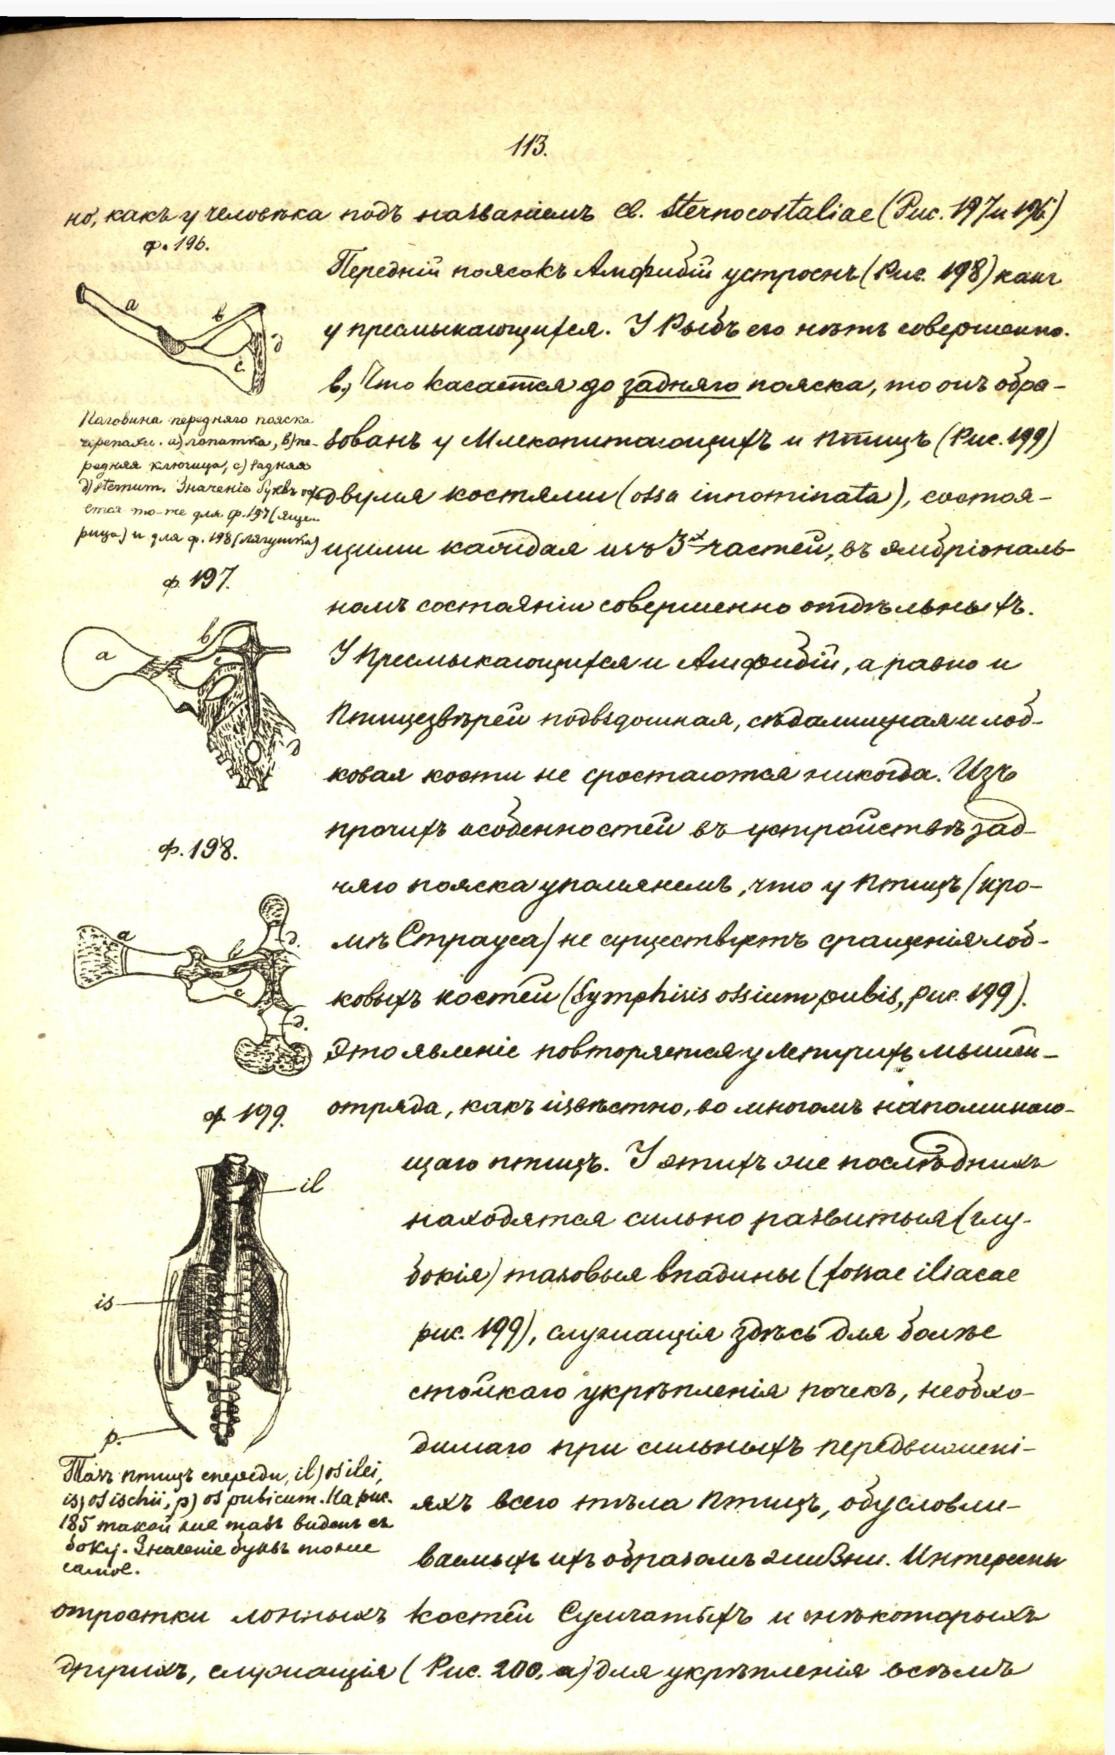 113.
но, какъ у человѣка подъ названіемъ cl. sternocostaliae (Рис. 197 и 196)
ф. 196.
a
b
c
d
Половина передняго пояска
черепахи. a) лопатка, b) пе-
редняя ключица, c) задняя
d) sternum. Значеніе буквъ ос-
ется то-же для ф. 197 (яще-
рица) и для ф. 198 (лягушка)
Передній поясокъ Амфибій устроенъ (Рис. 198) какъ
у пресмыкающихся. У Рыбъ его нѣтъ совершенно.
в) Что касается до задняго пояска, то онъ обра-
зованъ у Млекопитающихъ и птицъ (Рис. 199)
двумя костями (ossa innominata), состоя-
щими каждая изъ 3х частей, въ эмбріональ-
номъ состояніи совершенно отдѣльныхъ.
ф. 197.
a
b
d
У Пресмыкающихся и Амфибій, а равно и
Птицезвѣрей подвздошная, сѣдалищная и лоб-
ковая кости не сростаются никогда. Изъ
прочихъ особенностей въ устройствѣ зад-
няго пояска упомянемъ, что у птицъ (кро-
мѣ Страуса) не существуетъ сращенія лоб-
ковыхъ костей (Symphisis ossium pubis, рис. 199).
Это явленіе повторяется у летучихъ мышей-
отряда, какъ извѣстно, во многомъ напоминаю-
щаго птицъ. У этихъ же послѣднихъ
находятся сильно развитыя (глу-
бокія) тазовыя впадины (fossae iliacae
рис. 199), служащія здѣсь для болѣе
стойкаго укрѣпленія почекъ, необхо-
димаго при сильныхъ передвижені-
яхъ всего тѣла птицъ, обусловли-
ваемыхъ ихъ образомъ жизни. Интересны
ф. 198.
a
b
c
d.
d.
ф. 199.
il
is
p.
Тазъ птицъ спереди, il) os ilei,
is) os ischii, p) os pubicum. На рис.
185 такой же тазъ виденъ съ
боку. Значеніе буквъ тоже
самое.
отростки лонныхъ костей Сумчатыхъ и нѣкоторыхъ
другихъ, служащія (Рис. 200, a) для укрѣпленія всѣмъ